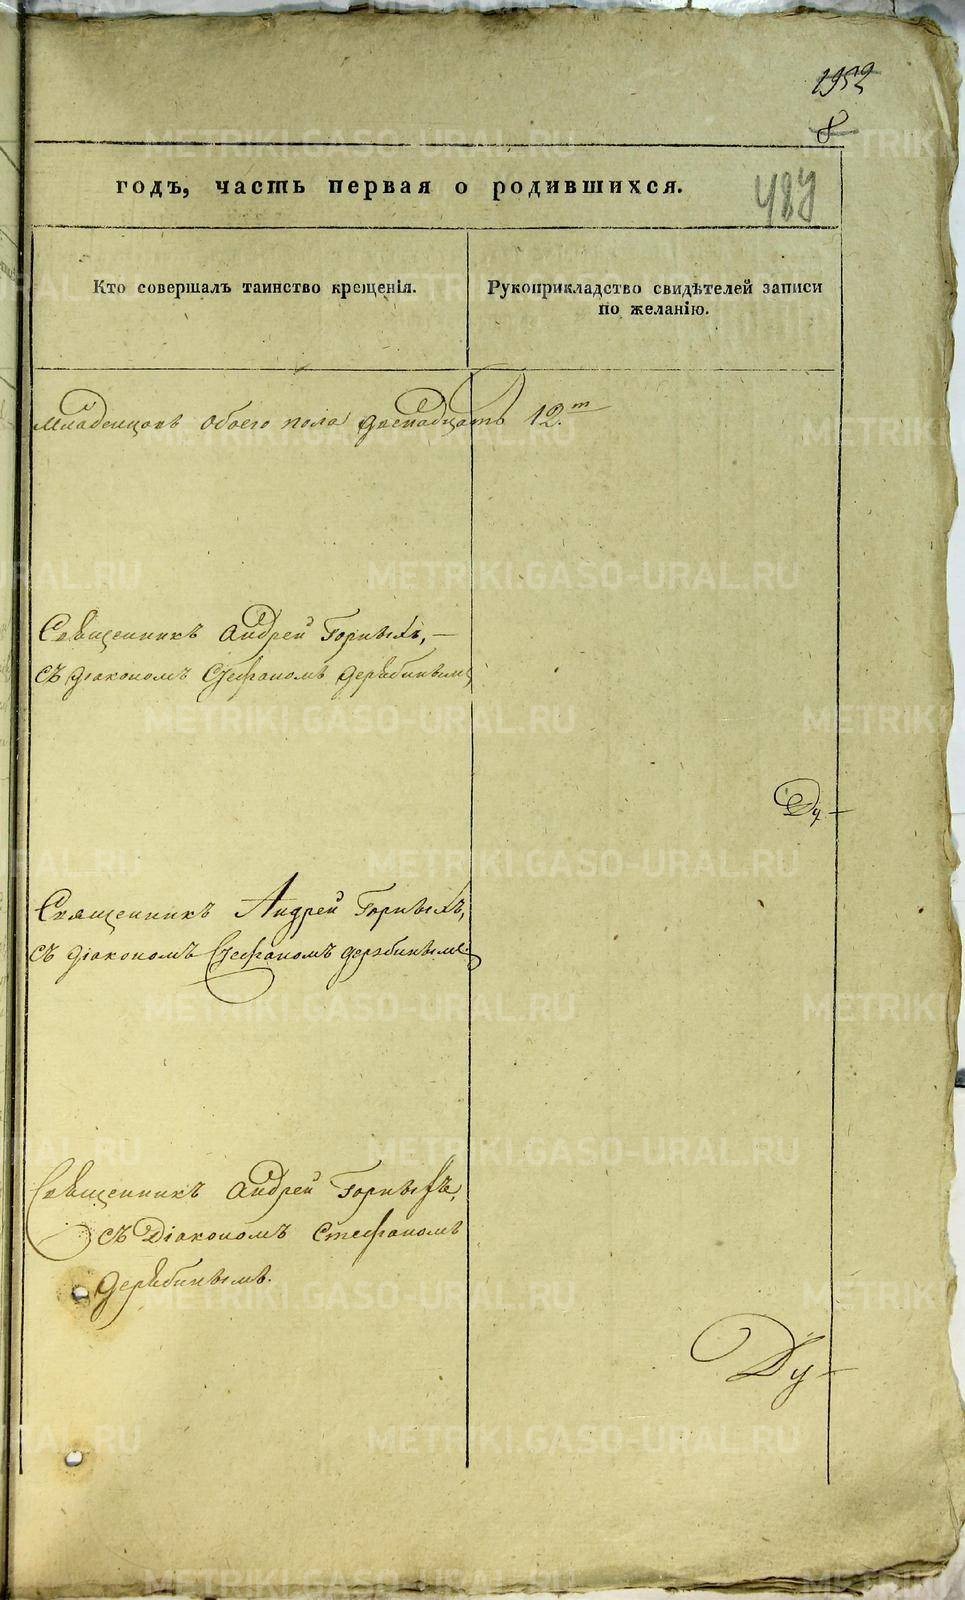 8
годъ, часть первая о родившихся.
Кто совершалъ таинство крещенія.
Рукоприкладство свидѣтелей записи
по желанію.
младенцовъ обоего пола двенадцать 12.т
Священникъ Андрей Горныхъ,
съ діакономъ Стефаномъ Дерябинымъ
Ду-
Священникъ Андрей Горныхъ,
съ діакономъ Стефаномъ Дерябинымъ
Священникъ Андрей Горныхъ,
съ Діакономъ Стефаномъ
Дерябинымъ.
Ду-
METRIKI.GASO-URAL.RU